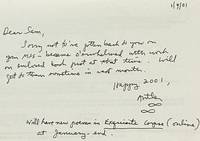 1/9/01
Dear Sam,
Sorry not to've gotten back to you on
you MSS – became o'erwhelmed with work
on enclosed book just at that time. Will
get to them sometime in next month.
Happy 2001,
Will have new poems in Exquisite Corpse (online)
at January-end.